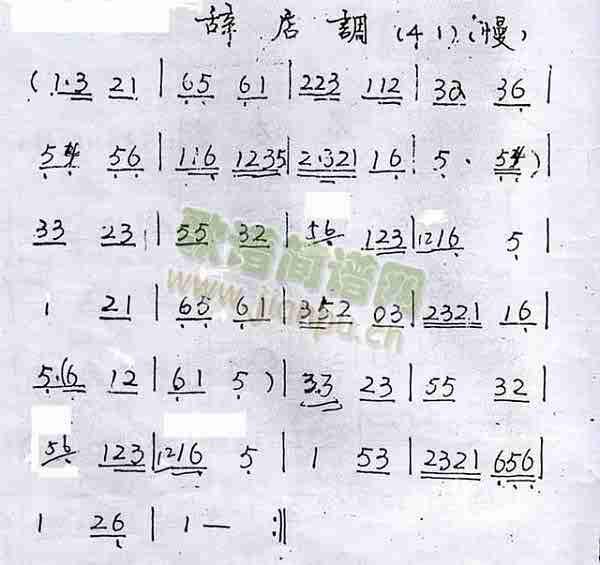 辞店調 (41) (慢)
(1·3 21 | 65 61 | 223 112 | 32 36 |
5#4 56 | 1·6 1235 | 2·321 16 | 5· 5#4) |
33 23 | 55 32 | 56 123 | 1216 5 |
1 21 | 65 61 | 352 03 | 2321 16 |
5·(6 12 | 61 5) | 3·3 23 | 55 32 |
56 123 | 1216 5 | 1 53 | 2321 656 |
1 26 | 1 — :||
歌谱简谱网
www.jianpu.cn